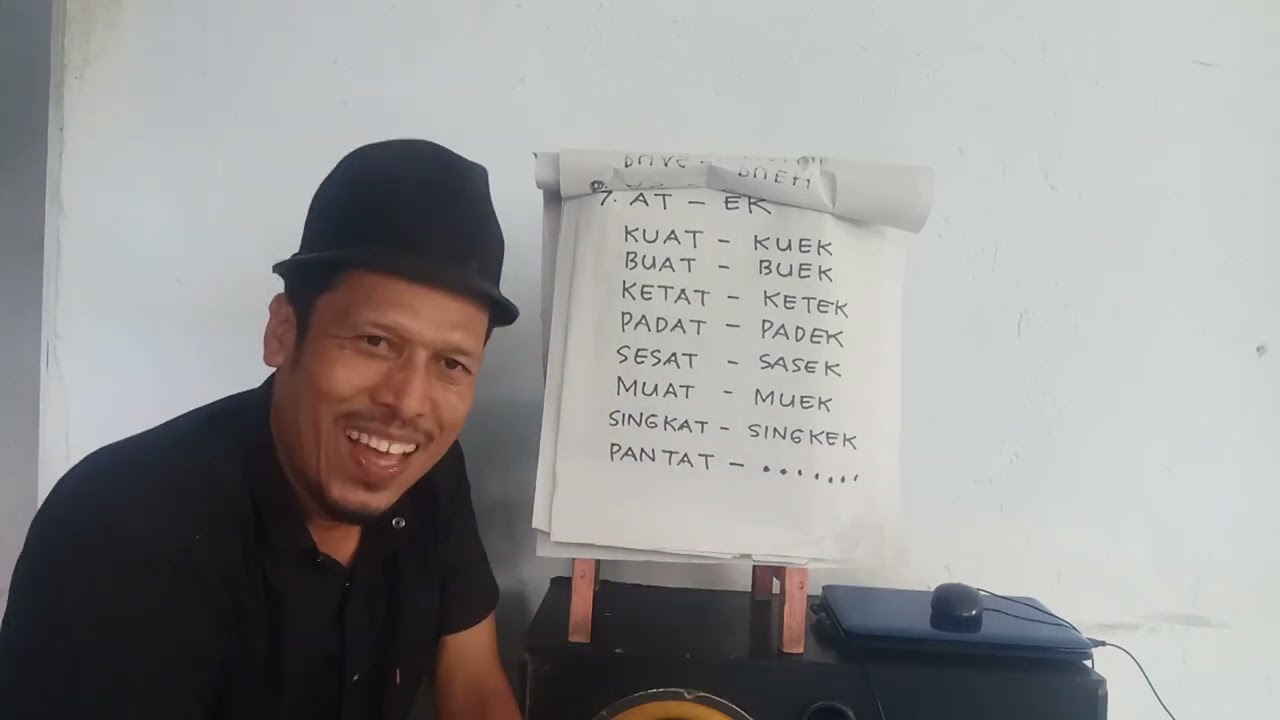 7. AT - EK
KUAT - KUEK
BUAT - BUEK
KETAT - KETEK
PADAT - PADEK
SESAT - SASEK
MUAT - MUEK
SINGKAT - SINGKEK
PANTAT - .......